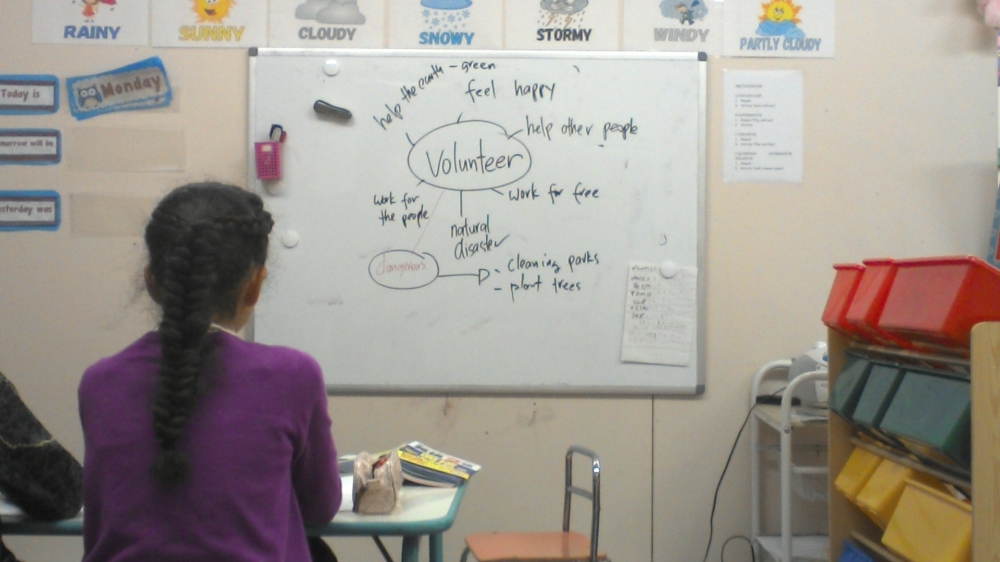 RAINY
SUNNY
CLOUDY
SNOWY
STORMY
WINDY
PARTLY CLOUDY
Today is
Monday
morrow will be
esterday was
help the earth - green
feel happy
help other people
Volunteer
work for free
work for
the people
natural
disaster
dangerous
- cleaning parks
- plant trees